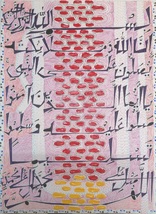 بسم الله الرحمن الرحيم
ان الله وملائكته
يصلون على النبي
يا ايها الذين آمنوا
صلوا عليه وسلموا
تسليما
اللهم